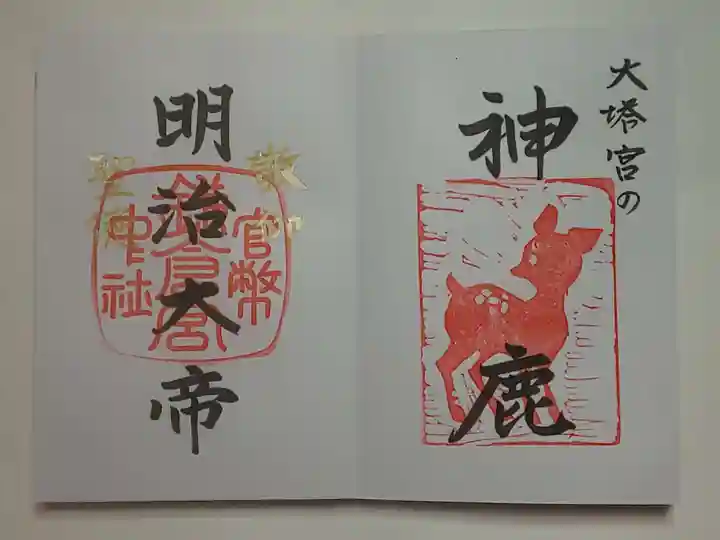 大塔宮の
神鹿
明治大帝
官幣
鎌倉宮
中社